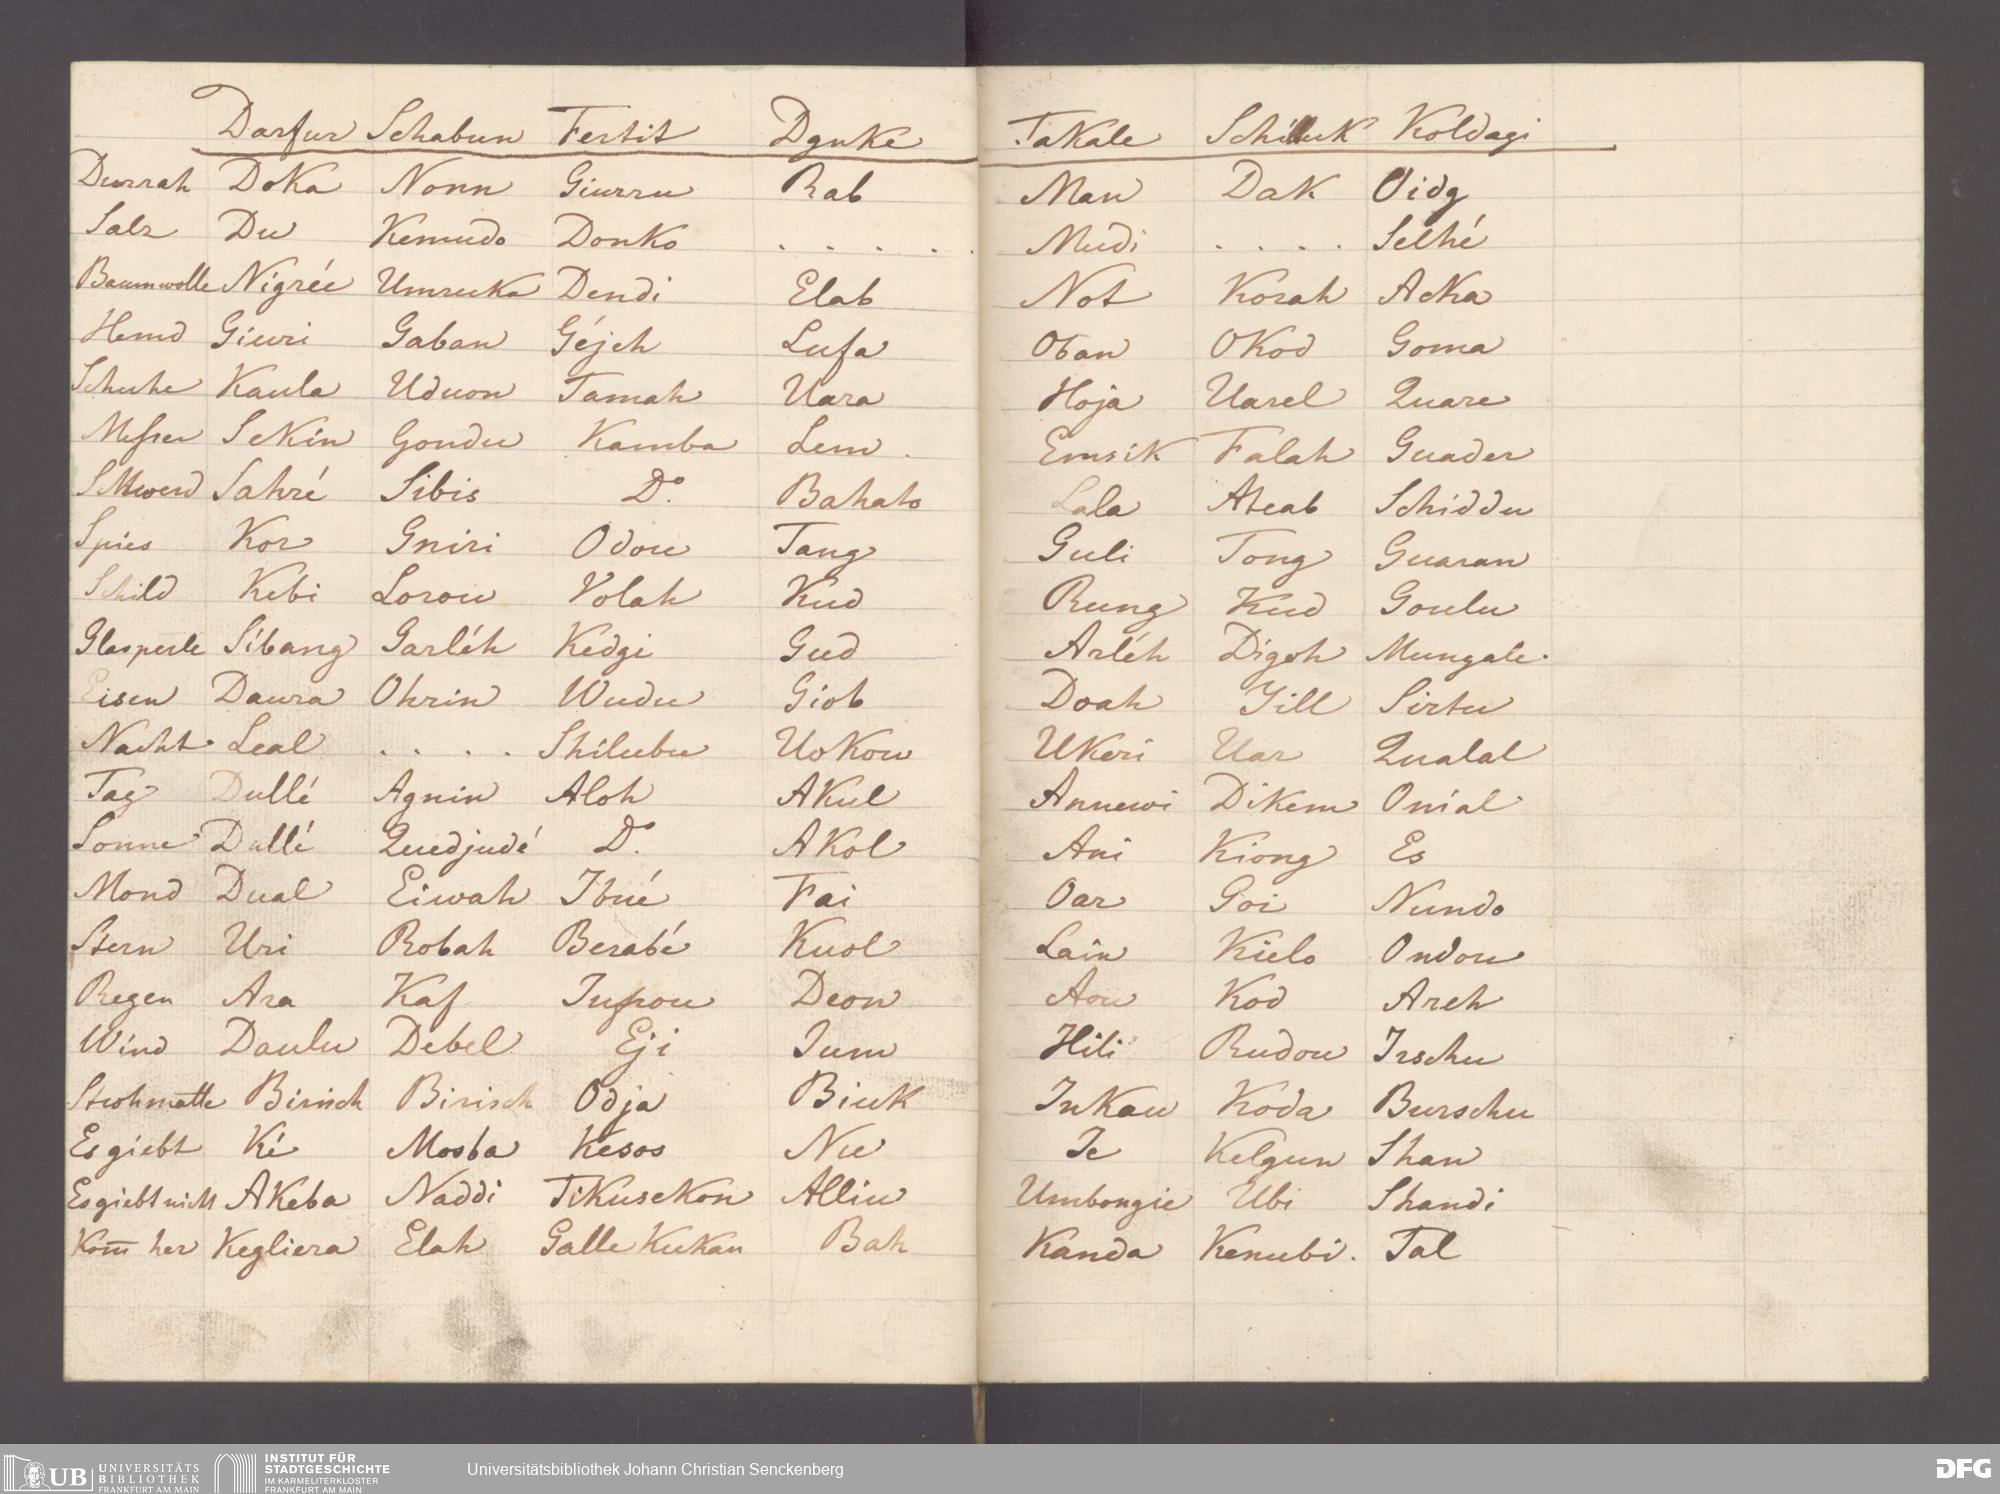 Darfur Schabun Fertit Dgnke Takale Schilluk Koldagi
Durrah Doka Nonn Giurru Rab Man Dak Oidg
Salz Du Kemudo Donko . . . . . Mudi . . . . Selhé
Baumwolle Nigrée Umruka Dendi Elab Not Korah Acka
Hemd Giuri Gaban Géjeh Lufa Oban Okod Goma
Schuhe Kaula Uduon Tamah Uara Hoja Uarel Quare
Messer Sekin Gondu Kamba Lem . Emsik Falah Guader
Schwerd Sahré Sibis Do. Bahato Lala Ateab Schiddu
Spies Kor Gniri Odou Tang Guli Tong Guaran
Schild Kebi Lorou Volah Kud Rung Kud Goulu
Glasperle Sibang Garléh Kedgi Gud Arléh Digoh Mungale.
Eisen Daura Ohrin Wudu Giob Doah Jill Sirtu
Nacht Leal . . . . Shilubu Uokou Ukeri Uar Qualal
Tag Dullé Agnin Aloh Akul Annewi Dikem Onial
Sonne Dullé Quedjudé Do. Akol Ani Kiong Es
Mond Dual Eiwah Ibué Fai Oar Goi Nundo
Stern Uri Robah Berabé Kuol Lain Kielo Ondou
Regen Ara Kaf Deon Aou Kod Areh
Wind Daulu Debel Eji Jum Hili Rudou Irschu
Strohmatte Birisch Birisch Odja Biuk Inkau Koda Burschu
Es giebt Ké Mosba Kesos Nu Je Kelgun Shan
Es giebt nicht Akeba Naddi Tikusekon Alliu Umbongie Ubi Shandi
Kom̅ her Kegliera Elah Galle Kukan Bah Kanda Kenubi. Tal
UB UNIVERSITÄTS BIBLIOTHEK FRANKFURT AM MAIN
INSTITUT FÜR STADTGESCHICHTE IM KARMELITERKLOSTER FRANKFURT AM MAIN
Universitätsbibliothek Johann Christian Senckenberg
DFG